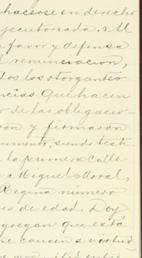 hacerse en derecho
ejecutoriada. Al
favor y defensa
remuneracion,
dos los otorgantes
ncias que hacen
o de las obligacio-
ron y firmaron
cumento, siendo testi
la primera calle
a Miguel Moral,
Regina número
es de edad. Doy
agregan que está
se causen a virtud